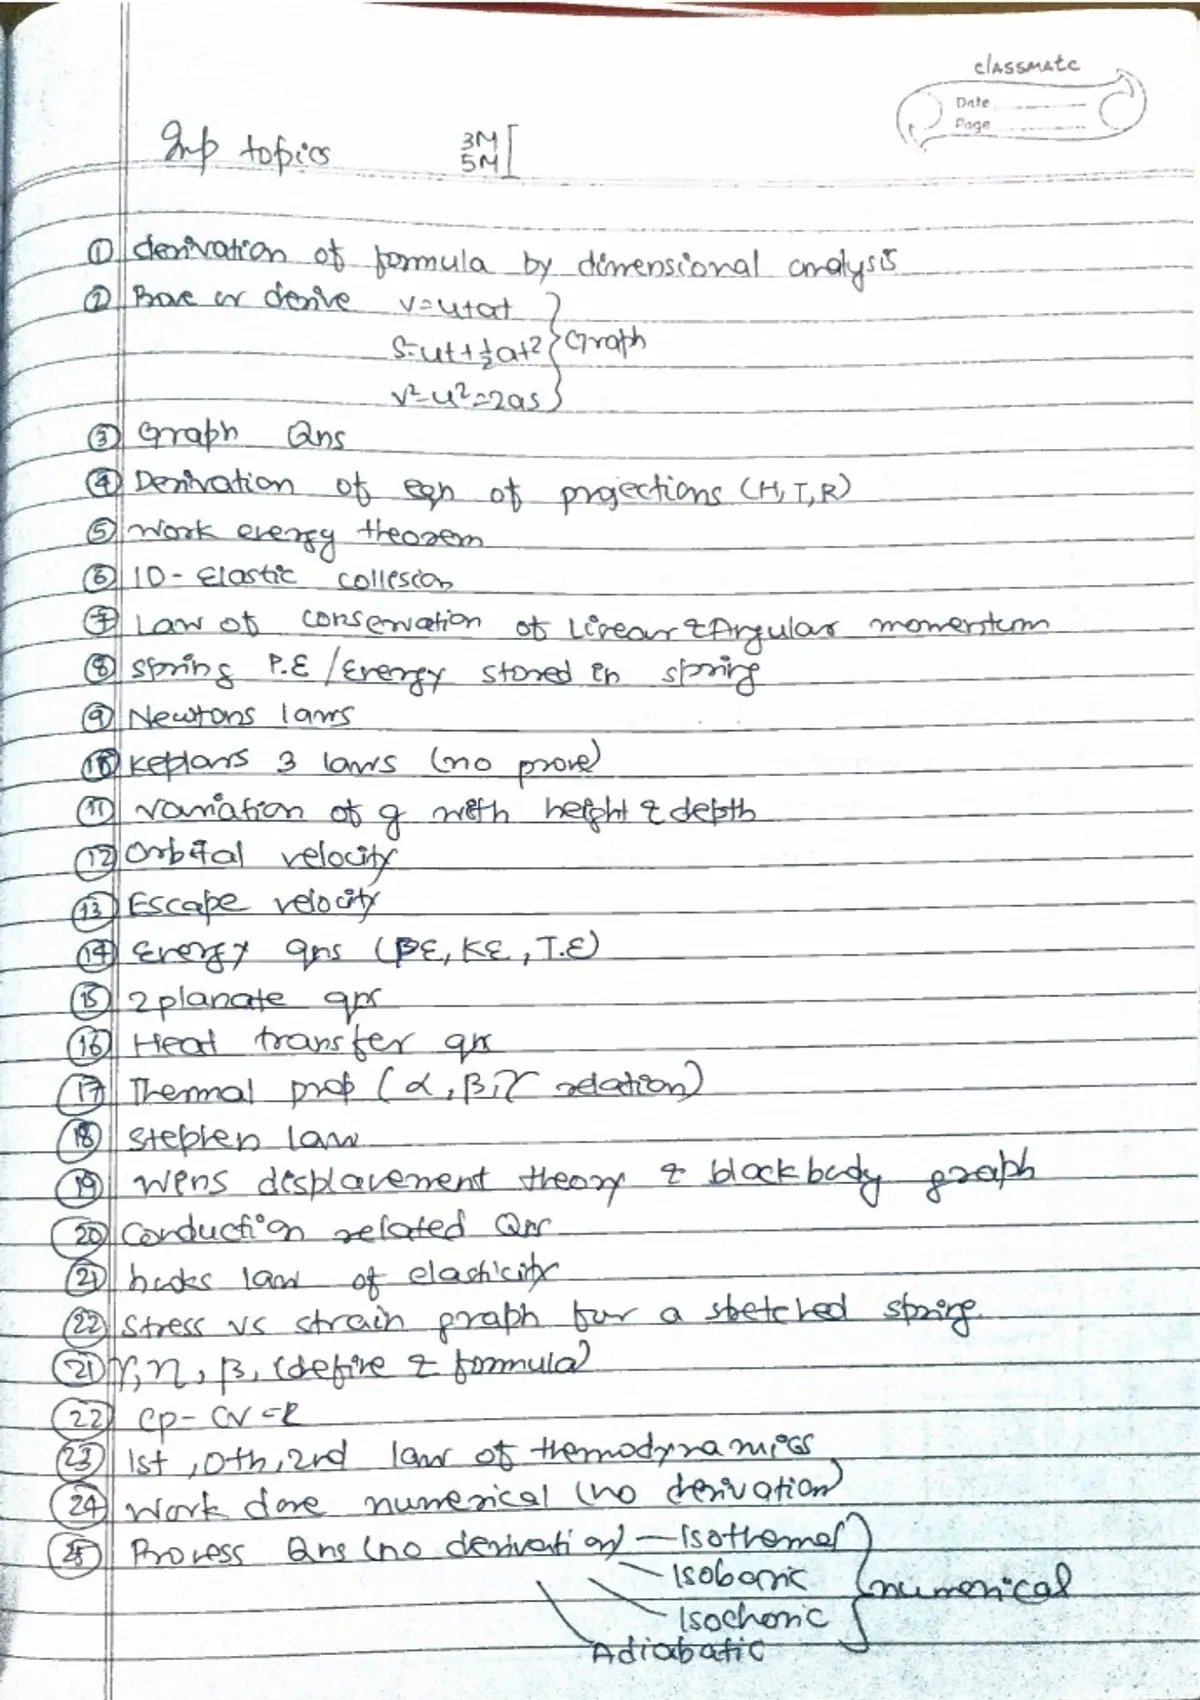 classmate
Date
Page
Imp topics 3M 5M [
① derivation of formula by dimensional analysis
② Prove or derive v=u+at
S=ut+½at² } Graph
v²-u²=2as
③ Graph Qns
④ Derivation of eqn of projections (H, T, R)
⑤ Work energy theorem
⑥ 1D - Elastic collesion
⑦ Law of conservation of Linear & Angular momentum
⑧ Spring P.E / Energy stored in spring
⑨ Newtons laws
⑩ Keplars 3 laws (no prove)
⑪ variation of g with height & depth
⑫ Orbital velocity
⑬ Escape velocity
⑭ Energy qns (PE, KE, T.E)
⑮ 2 planate qns
⑯ Heat transfer qns
⑰ Thermal prop (α, β, γ relation)
⑱ Stephen law
⑲ Wens displacement theory & blackbody graph
⑳ Conduction related Qns
㉑ hooks law of elasticity
㉒ Stress vs strain graph for a stetched spring
㉑ Y, η, β, (define & formula)
㉒ Cp - Cv = R
㉓ 1st, 0th, 2nd law of themodynamics
㉔ Work done numerical (no derivation)
㉕ Process Qns (no derivation) — Isothemal
Isobaric } numerical
Isochoric
Adiabatic